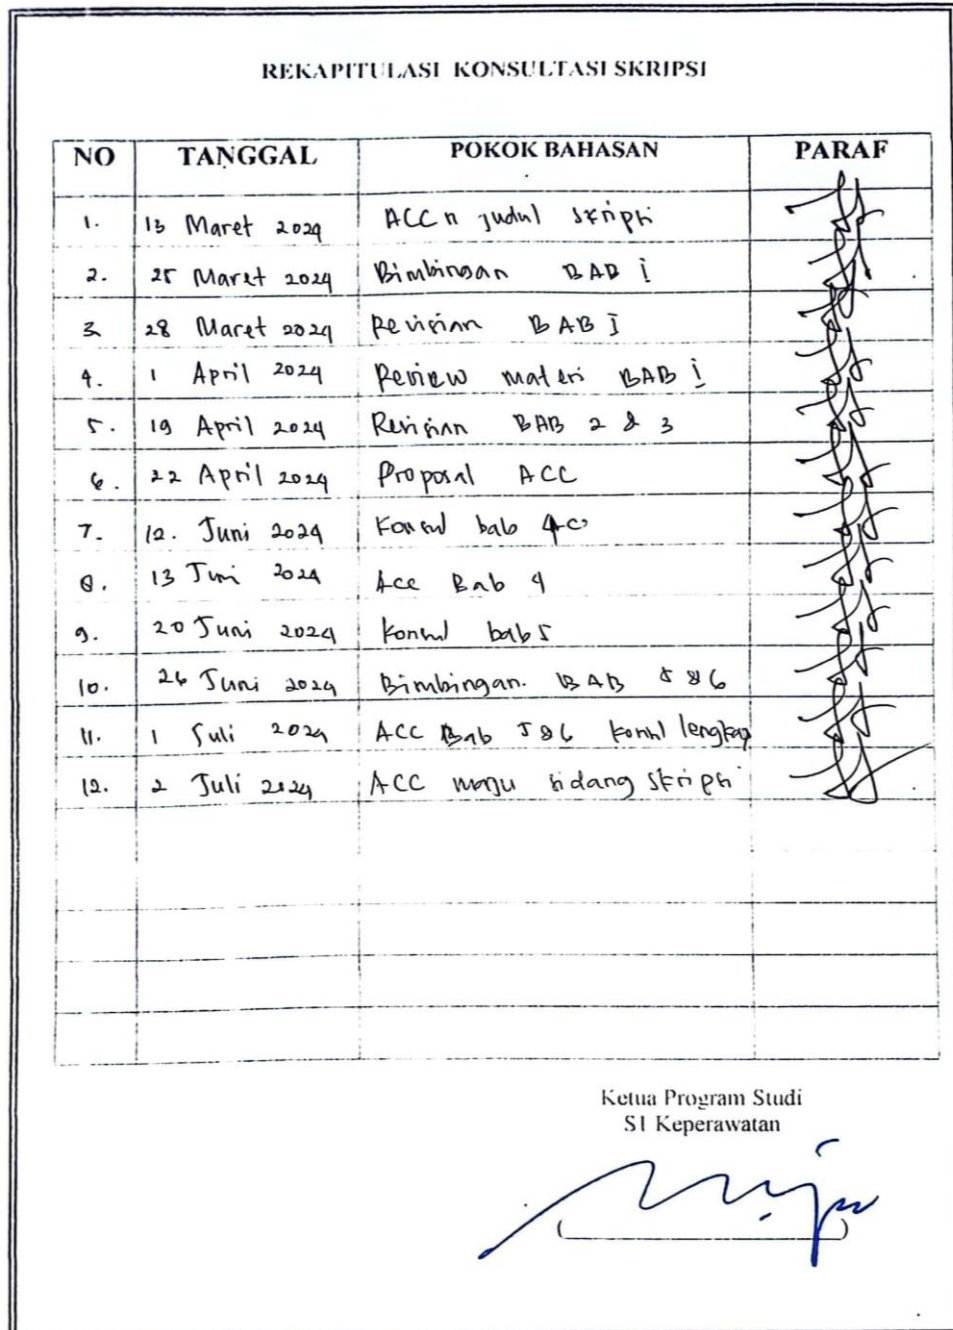 REKAPITULASI KONSULTASI SKRIPSI
NO TANGGAL POKOK BAHASAN PARAF
1. 13 Maret 2024 ACC n judul skripsi
2. 25 Maret 2024 Bimbingan BAB I
3. 28 Maret 2024 Revisian BAB I
4. 1 April 2024 Review materi BAB I
5. 19 April 2024 Revisian BAB 2 & 3
6. 22 April 2024 Proposal ACC
7. 12. Juni 2024 Konsul bab 4
8. 13 Juni 2024 Acc Bab 4
9. 20 Juni 2024 Konsul bab 5
10. 26 Juni 2024 Bimbingan. BAB 5 & 6
11. 1 Juli 2024 ACC Bab 5 & 6 konsul lengkap
12. 2 Juli 2024 ACC maju sidang skripsi
Ketua Program Studi
S1 Keperawatan